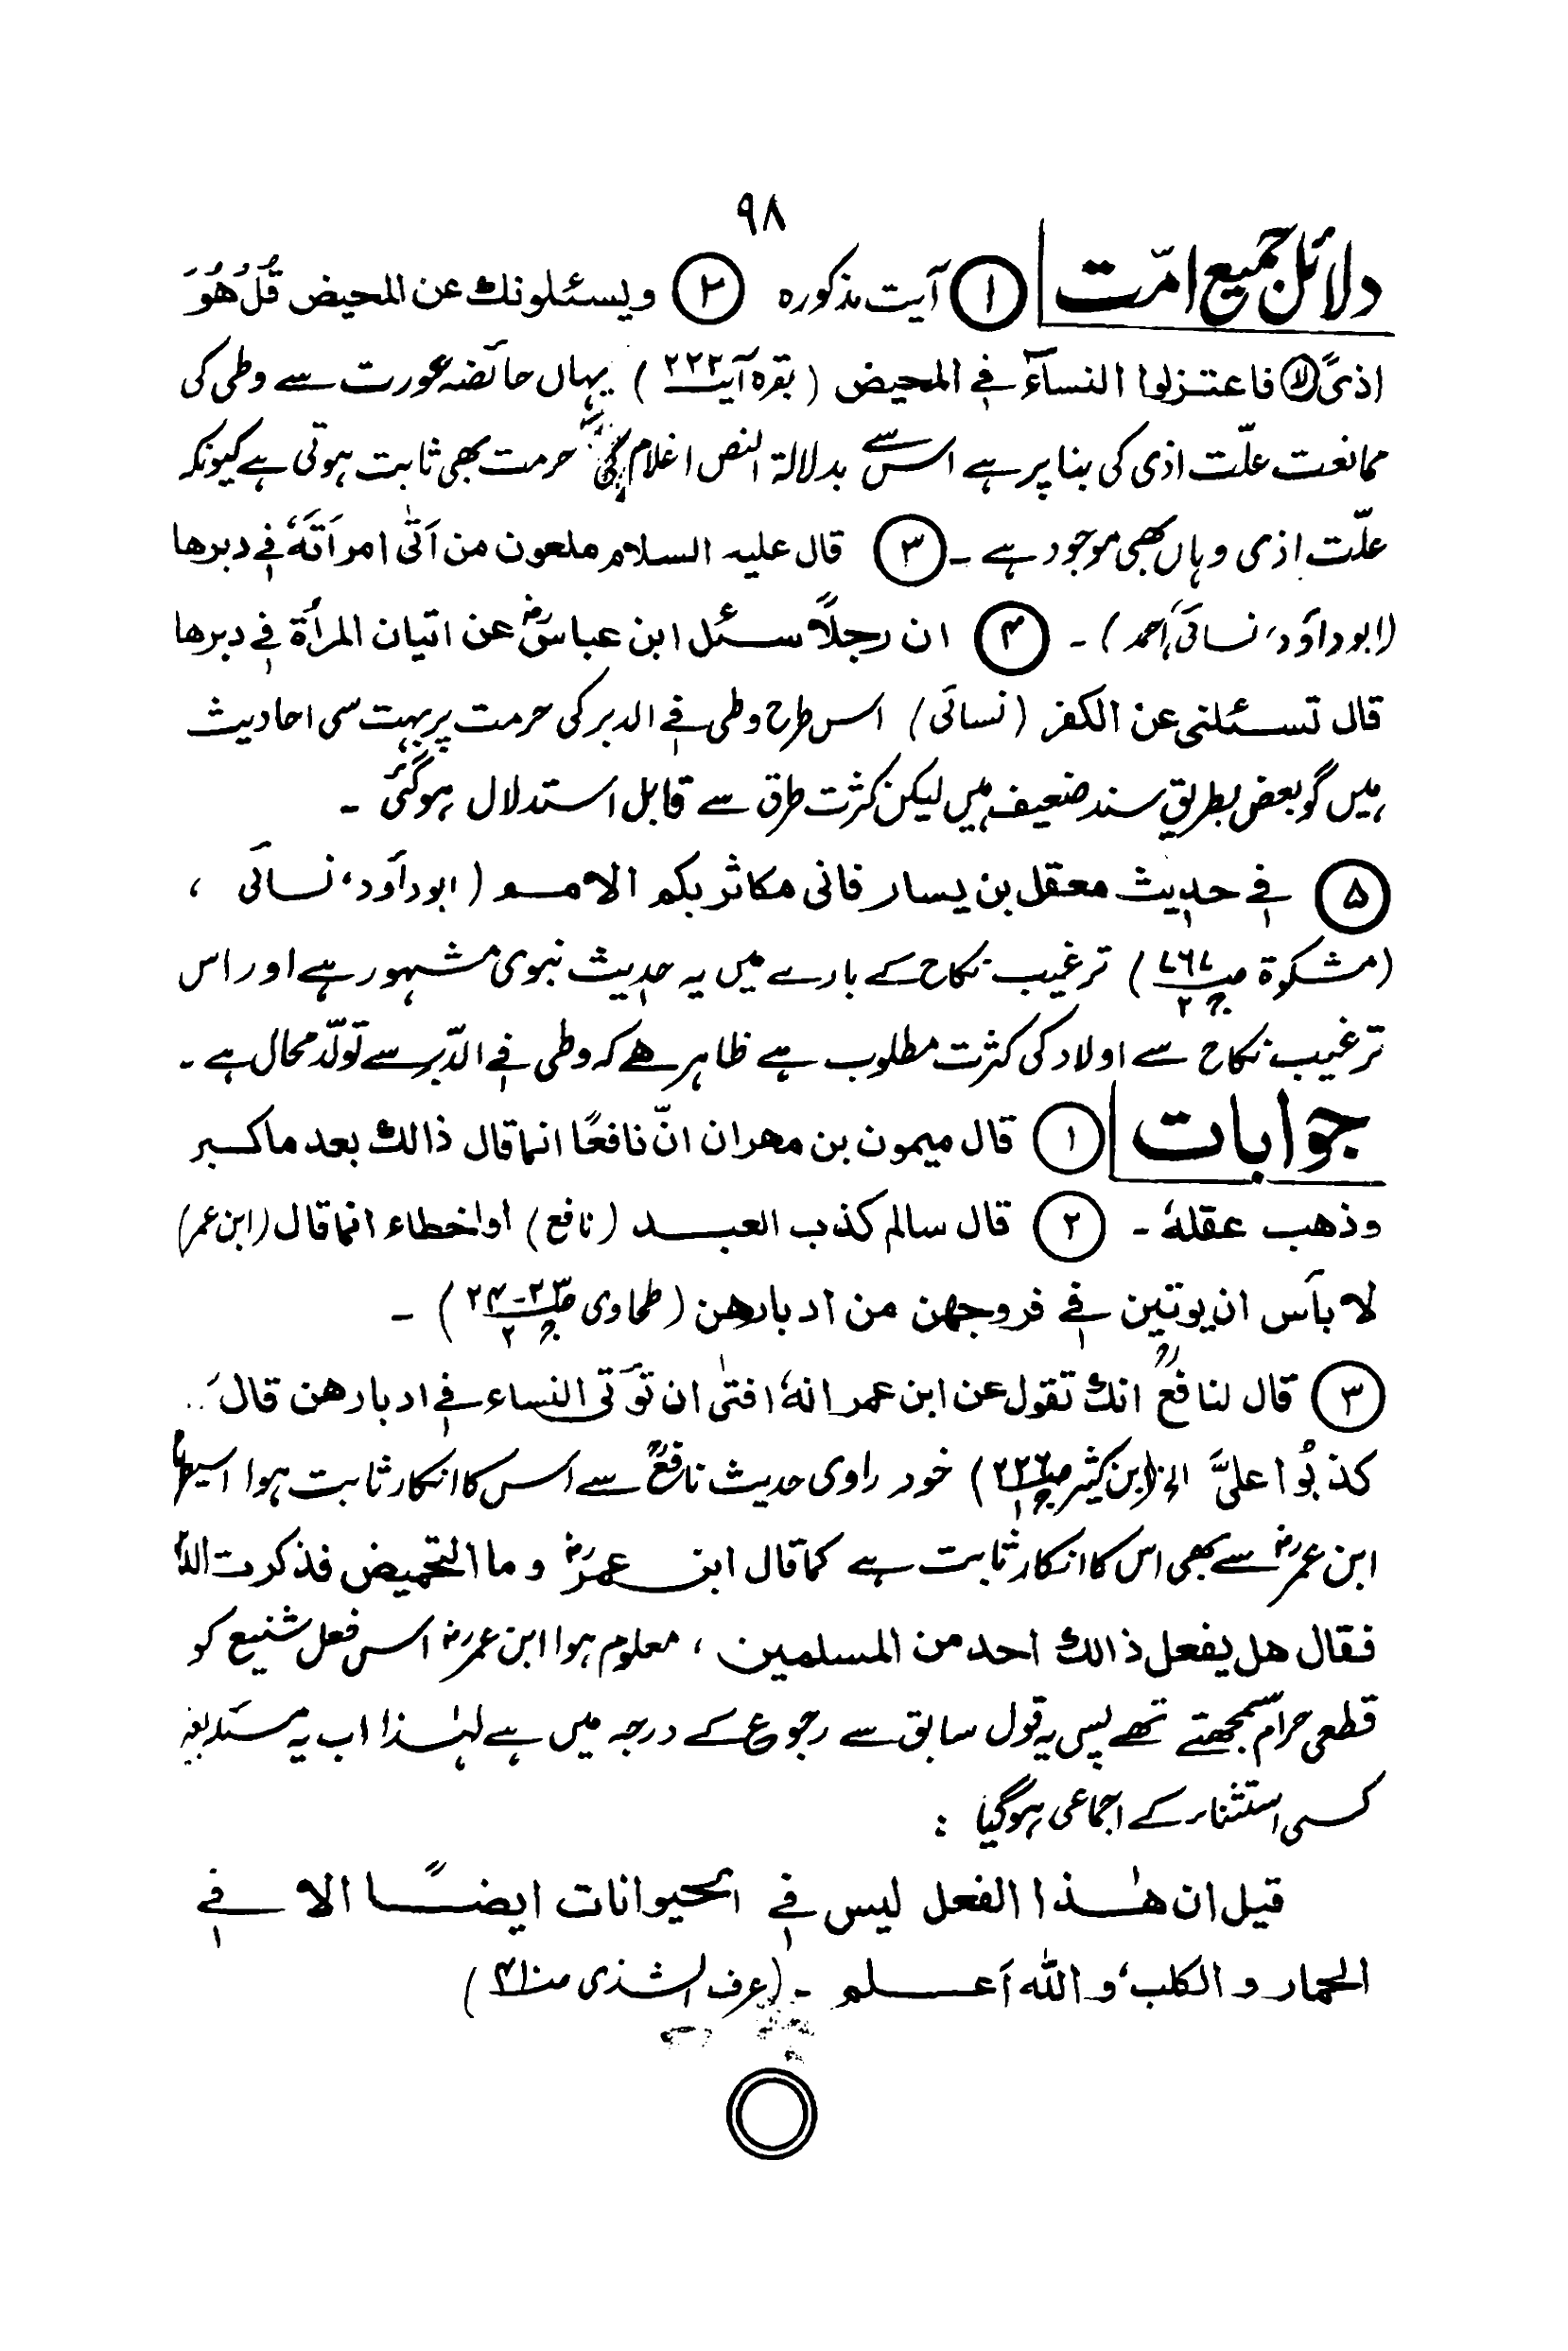 ۹۸
دلائل جمیع امّت ① آیت مذکورہ ② ویسئلونك عن المحیض قُلْ هُوَ
اذیً لا فاعتزلوا النساءَ فی المحیض ( بقرہ آیت ۲۲۲ ) یہاں حائضہ عورت سے وطی کی
ممانعت علّت اذی کی بنا پر ہے اس سے بدلالۃ النص اغلام کی حرمت بھی ثابت ہوتی ہے کیونکہ
علّت اذی وہاں بھی موجود ہے ۔ ③ قال علیہ السلام ملعون من اَتٰی امراَتَہٗ فی دبرها
(ابوداؤد، نسائی، احمد) ۔ ④ ان رجلاً سئل ابن عباسؓ عن اتیان المرأة فی دبرها
قال تسئلنی عن الکفر (نسائی) اس طرح وطی فی الدبر کی حرمت پر بہت سی احادیث
ہیں گو بعض بطریق سند ضعیف ہیں لیکن کثرت طرق سے قابل استدلال ہوگئی ۔
⑤ فی حدیث معقل بن یسار فانی مکاثر بکم الامم ( ابوداؤد، نسائی ،
(مشکوۃ ص۲۶۷ ج۲) ترغیب نکاح کے بارے میں یہ حدیث نبوی مشہور ہے اور اس
ترغیب نکاح سے اولاد کی کثرت مطلوب ہے ظاہر ہے کہ وطی فی الدّبر سے تولّد محال ہے ۔
جوابات ① قال میمون بن مهران انّ نافعًا انما قال ذالك بعد ما کبر
وذهب عقلهٗ ۔ ② قال سالم کذب العبد (نافع) أو اخطاء انما قال (ابن عمر)
لا بأس ان یوتین فی فروجهن من ادبارهن (طحاوی ص۲۳-۲۴ ج۲) ۔
③ قال لنافعؒ انك تقول عن ابن عمر انهٗ افتیٰ ان تؤتی النساء فی ادبارهن قال ..
کذبُوا علیَّ الخ (ابن کثیر ص۲۲۶ ج۱) خود راوی حدیث نافعؒ سے اس کا انکار ثابت ہوا اسیطرح
ابن عمرؓ سے بھی اس کا انکار ثابت ہے کما قال ابن عمرؓ وما التحمیض فذکرت الدبر
فقال هل یفعل ذالك احد من المسلمین ، معلوم ہوا ابن عمرؓ اس فعل شنیع کو
قطعی حرام سمجھتے تھے پس یہ قول سابق سے رجوع کے درجہ میں ہے لہٰذا اب یہ مسئلہ بغیر
کسی استثناء کے اجماعی ہوگیا :
قیل ان هٰذا الفعل لیس فی الحیوانات ایضًا الا فی
الحمار و الکلب، و اللہ أعلم ۔ (عرف الشذی)